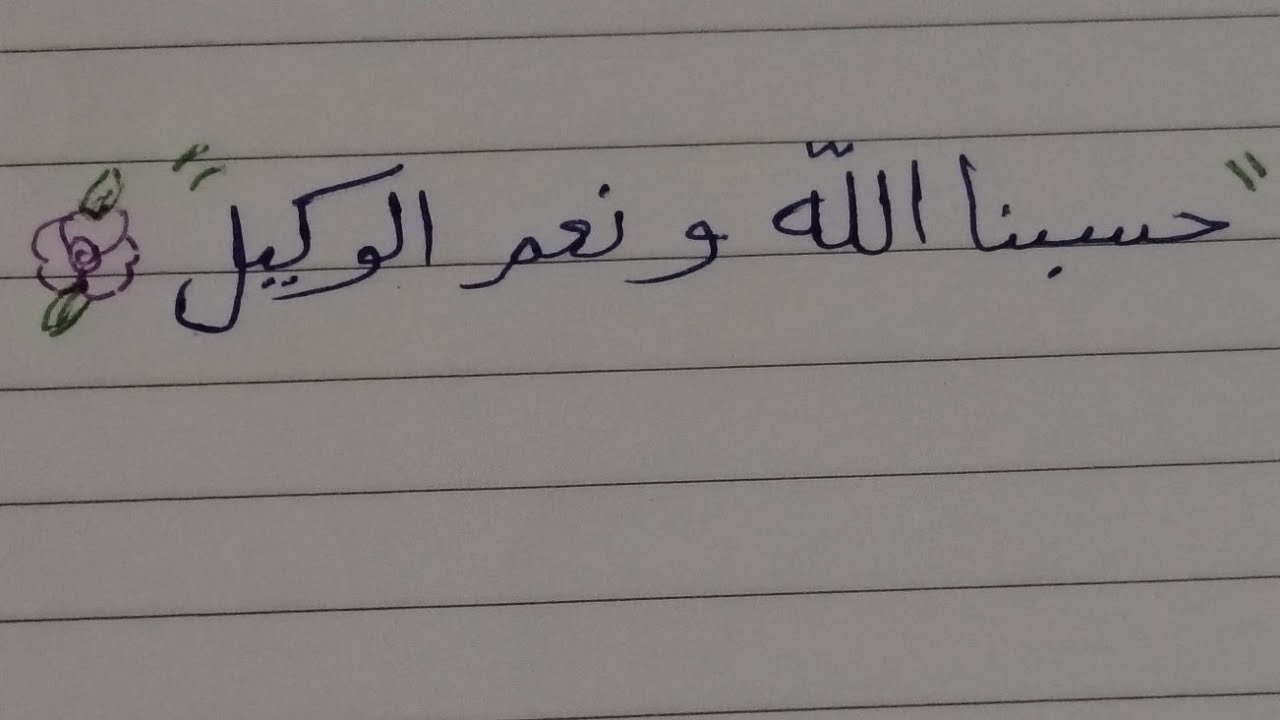 "حسبنا اللّه و نعم الوكيل"